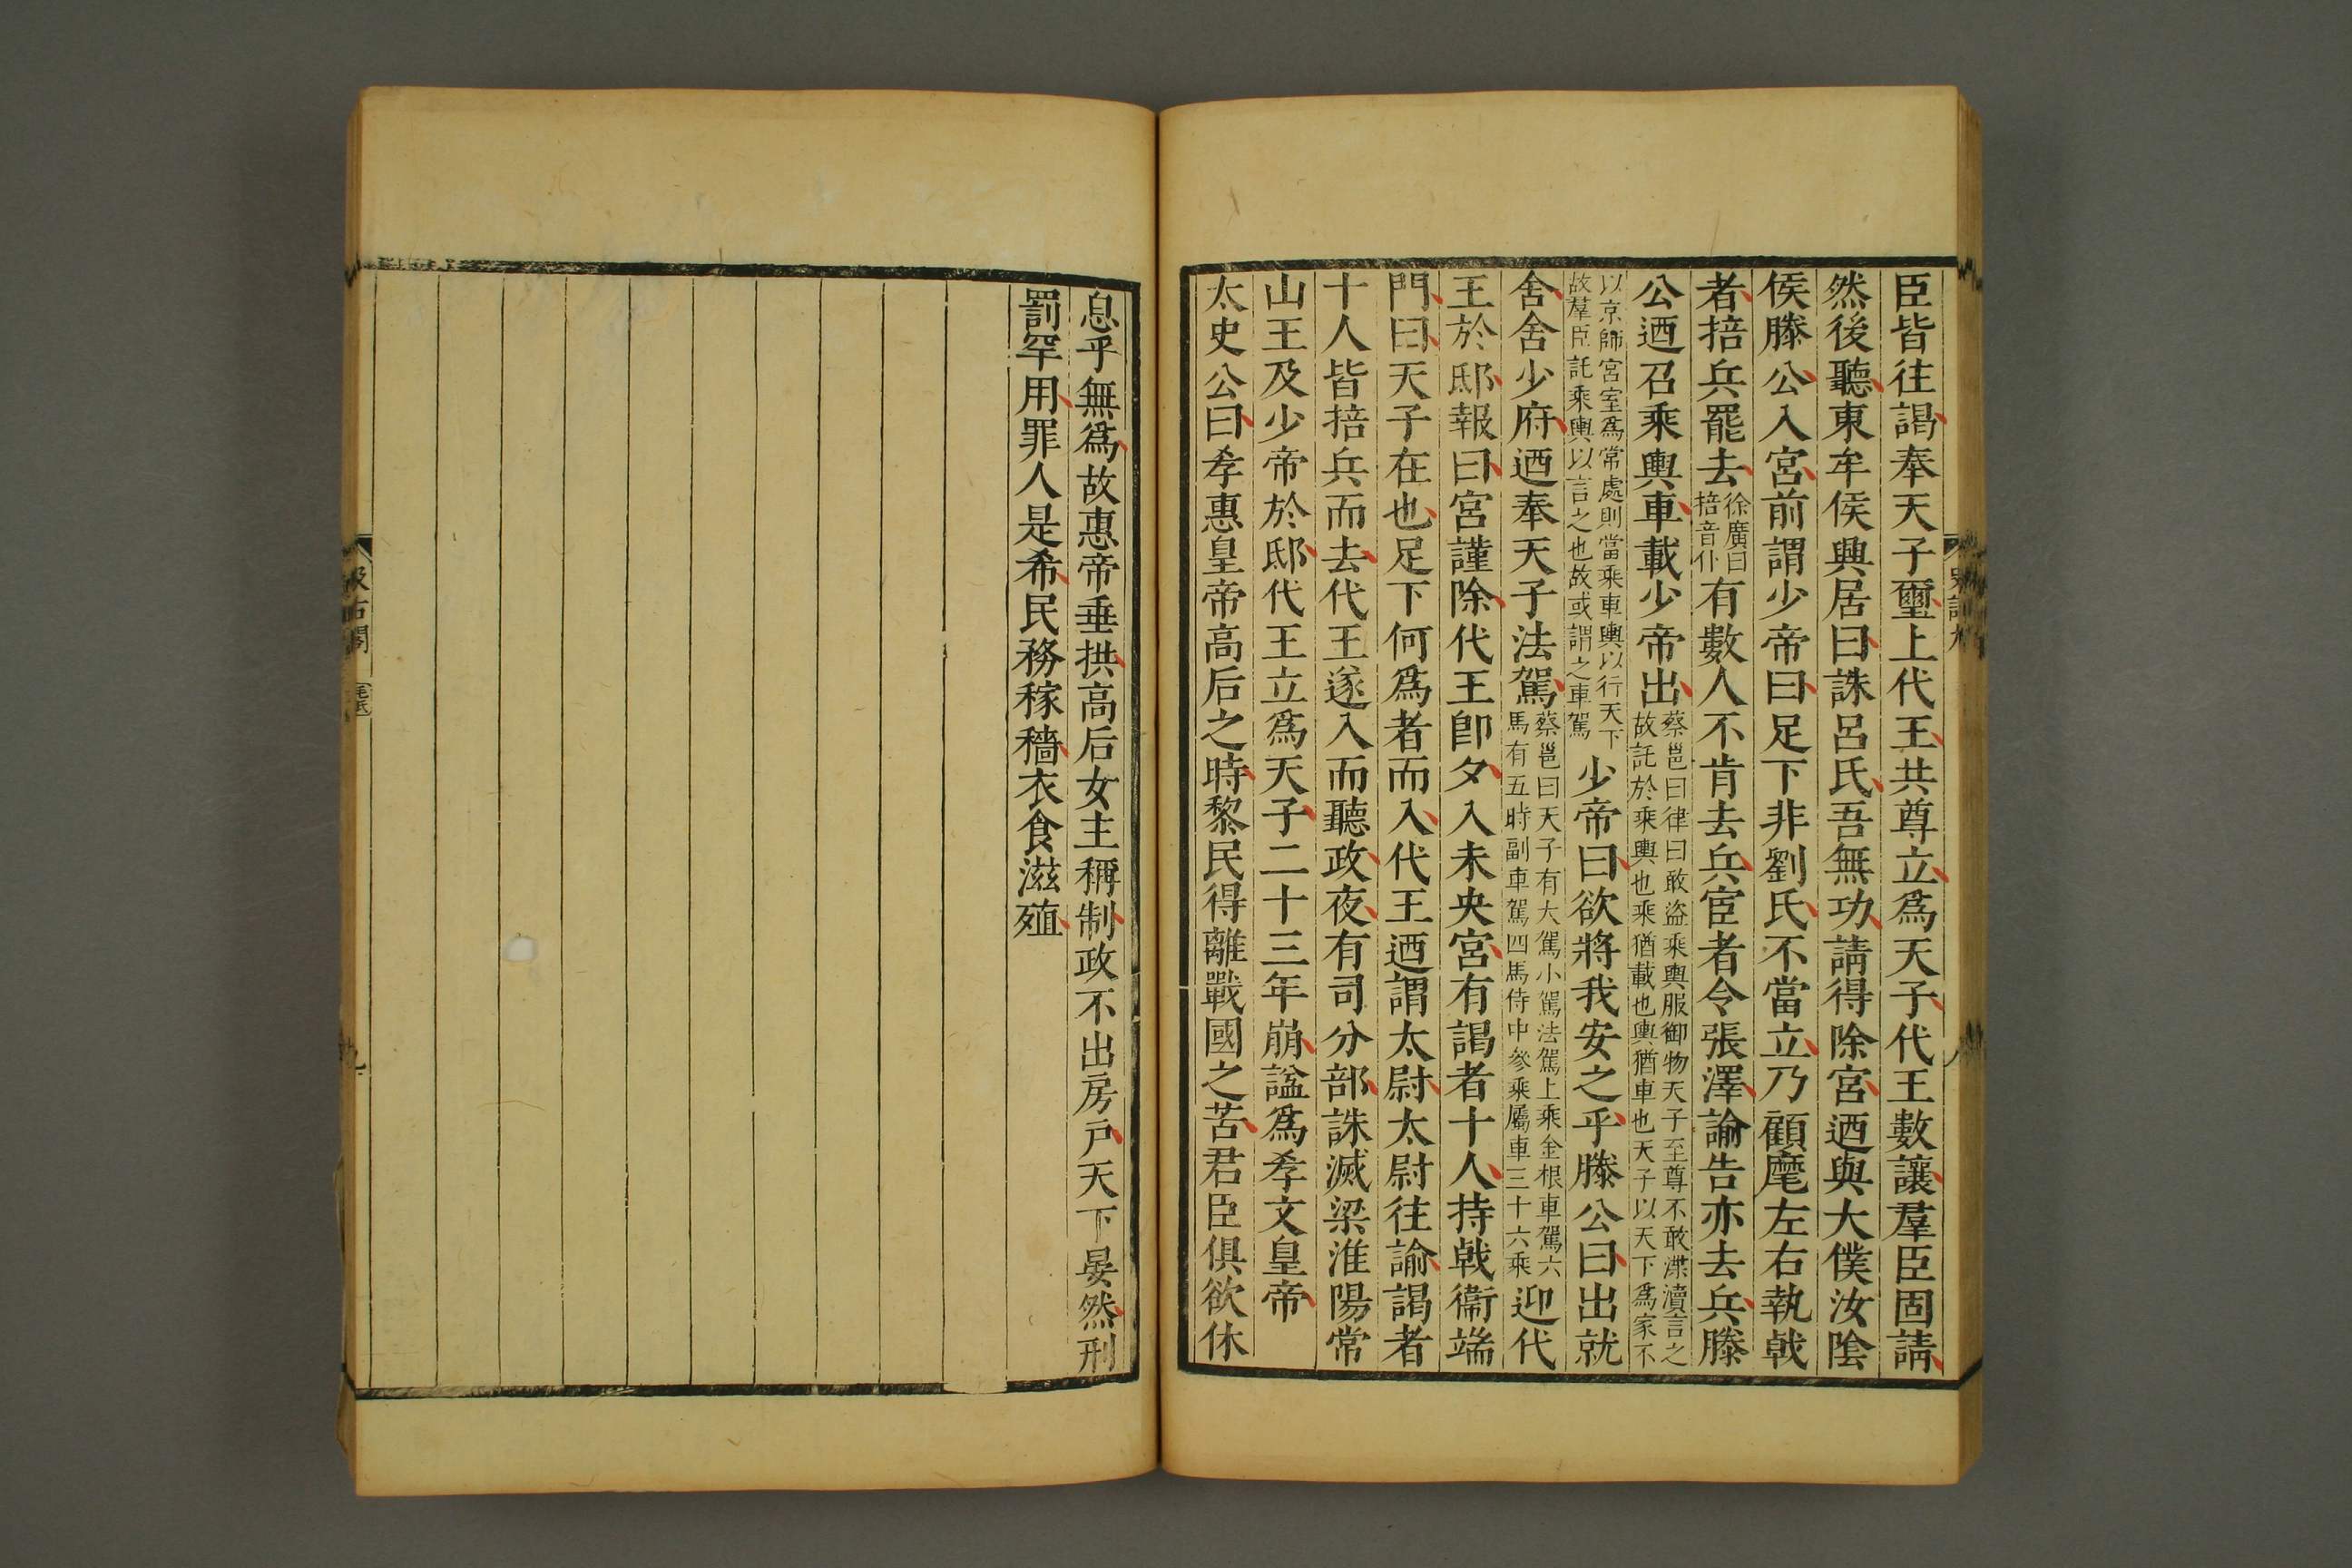 臣皆往謁奉天子璽上代王共尊立爲天子代王數讓羣臣固請
然後聽東牟侯興居曰誅呂氏吾無功請得除宮迺與大僕汝陰
侯滕公入宮前謂少帝曰足下非劉氏不當立乃顧麾左右執戟
者掊兵罷去徐廣曰掊音仆有數人不肯去兵宦者令張澤諭告亦去兵滕
公迺召乘輿車載少帝出蔡邕曰律曰敢盜乘輿服御物天子至尊不敢渫瀆言之故託於乘輿也乘猶載也輿猶車也天子以天下爲家不
以京師宮室爲常處則當乘車輿以行天下故羣臣託乘輿以言之也故或謂之車駕少帝曰欲將我安之乎滕公曰出就
舍舍少府迺奉天子法駕蔡邕曰天子有大駕小駕法駕上乘金根車駕六馬有五時副車駕四馬侍中參乘屬車三十六乘迎代
王於邸報曰宮謹除代王卽夕入未央宮有謁者十人持戟衞端
門曰天子在也足下何爲者而入代王迺謂太尉太尉往諭謁者
十人皆掊兵而去代王遂入而聽政夜有司分部誅滅梁淮陽常
山王及少帝於邸代王立爲天子二十三年崩諡爲孝文皇帝
太史公曰孝惠皇帝高后之時黎民得離戰國之苦君臣俱欲休
史記九
八
息乎無爲故惠帝垂拱高后女主稱制政不出房戶天下晏然刑
罰罕用罪人是希民務稼穡衣食滋殖
汲古閣
毛氏
九